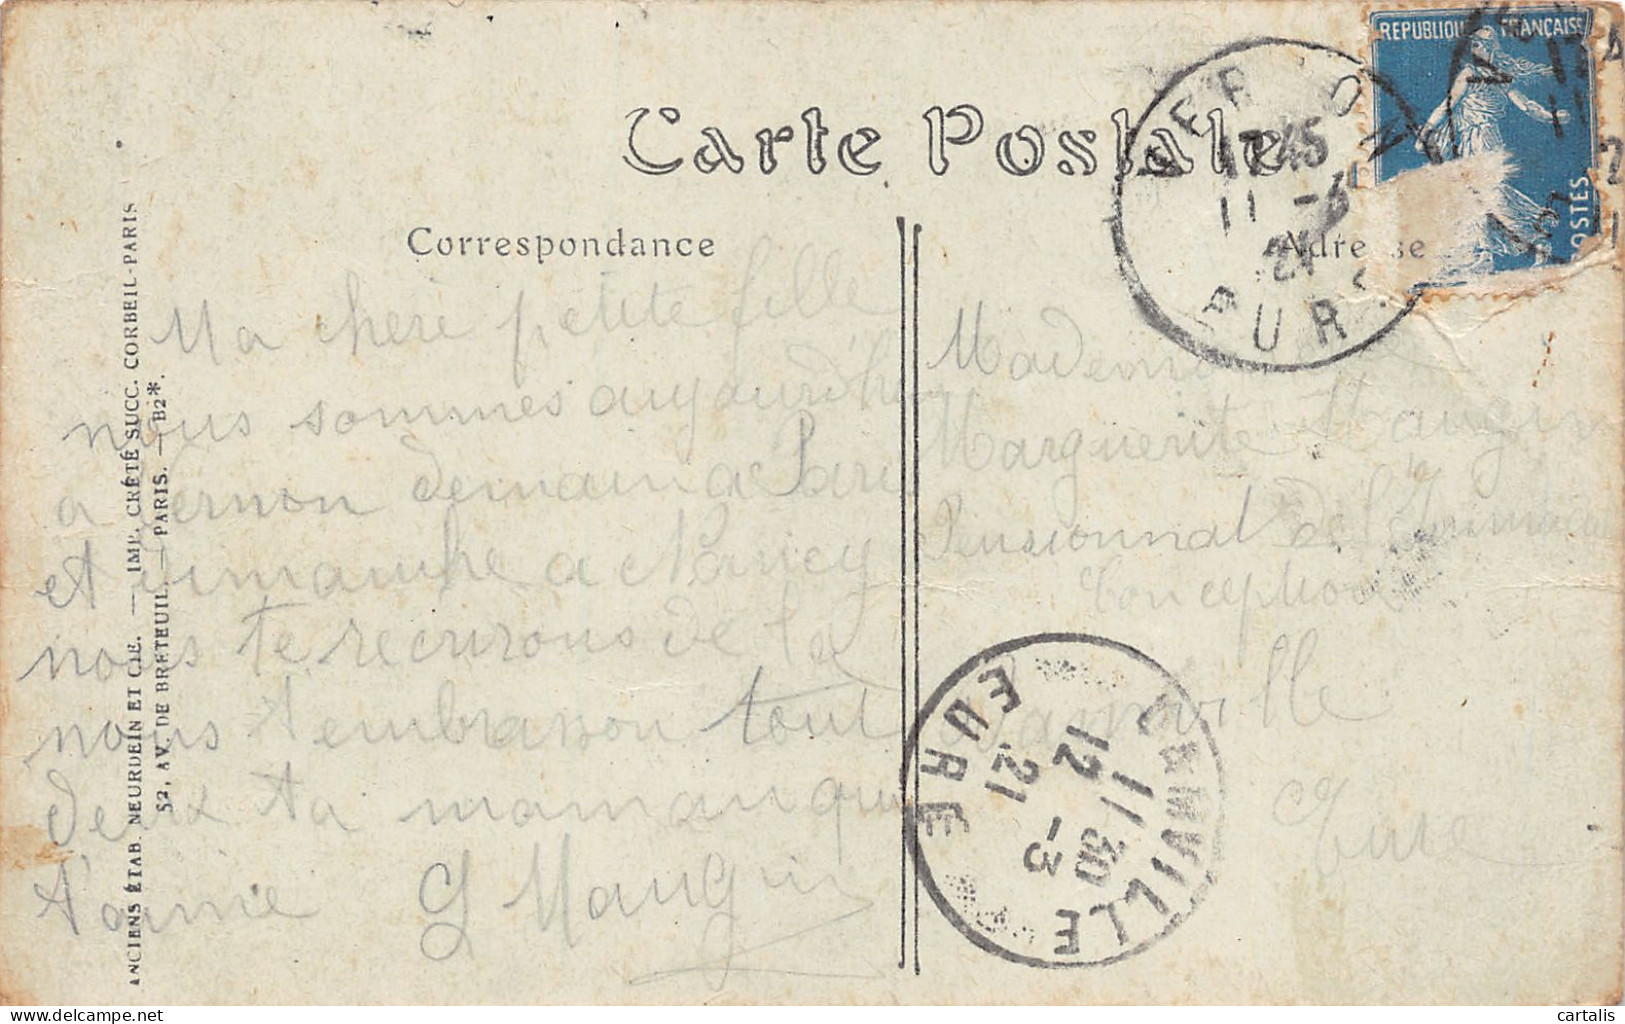 Carte Postale
Correspondance
Adresse
REPUBLIQUE FRANÇAISE
POSTES
VERNON
17 45
11 -3
21
EURE
Ma chere petite fille
nous sommes aujourd'hui
a Vernon demain a Paris
et dimanche a Nancy
nous te recrirons de la
nous t'embrasson tout
deux ta maman qui
t'aime G Mangin
Mademoiselle
Marguerite Mangin
Pensionnat de l'Immaculée
Conception
Damville
Eure
DAMVILLE
11 30
12 -3
21
EURE
ANCIENS ÉTAB. NEURDEIN ET CIE. — IMP. CRÉTÉ SUCC. CORBEIL-PARIS
52, AV. DE BRETEUIL. — PARIS. — B2*.
cartalis